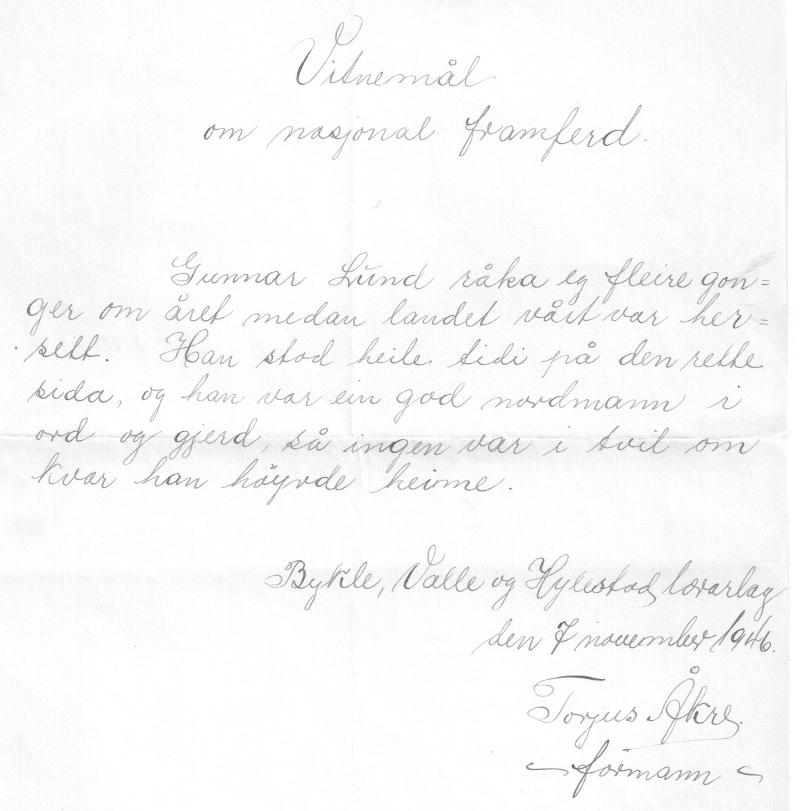 Vitnemål
om nasjonal framferd.
Gunnar Lund råka eg fleire gon=
ger om året medan landet vårt var her=
sett. Han stod heile tidi på den rette
sida, og han var ein god nordmann i
ord og gjerd, så ingen var i tvil om
kvar han höyrde heime.
Bykle, Valle og Hylestad lærarlag
den 7 november 1946.
Torjus Åkre.
formann